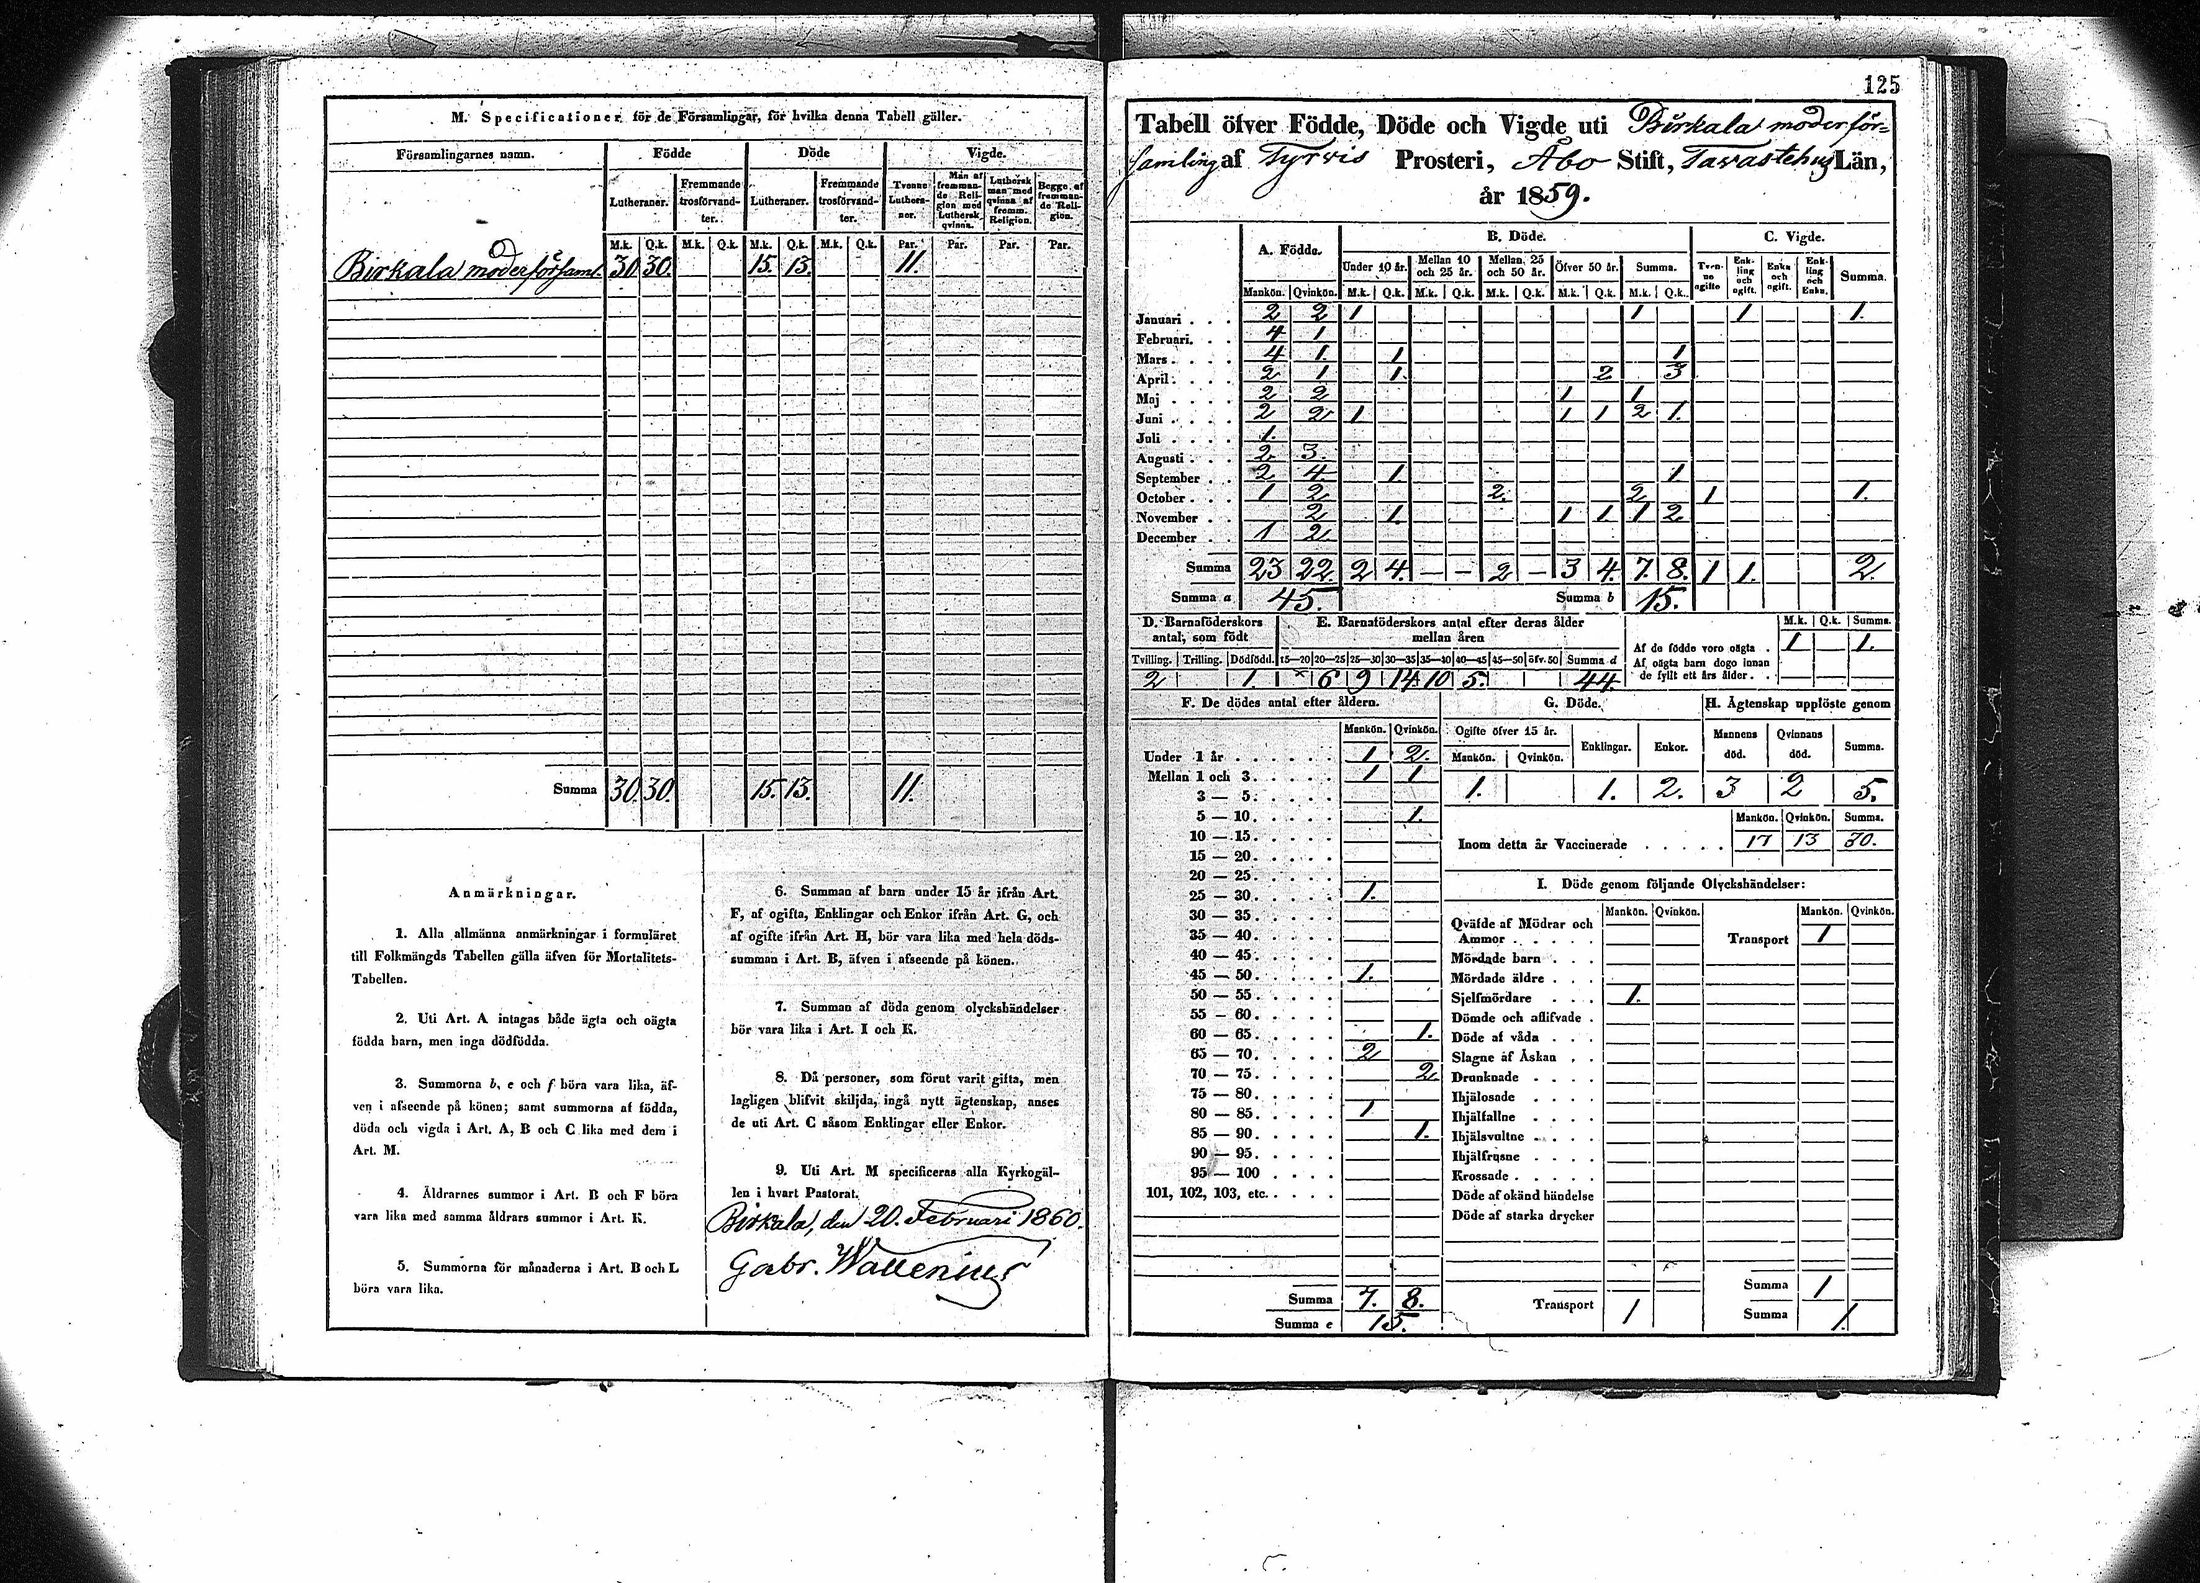 M. Specificationer för de Församlingar, för hvilka denna Tabell gäller.
Församlingarnes namn. Födde Döde Vigde.
Lutheraner. Fremmande trosförvandter. Lutheraner. Fremmande trosförvandter. Tvenne Lutheraner. Man af fremmande Religion med Luthersk qvinna. Luthersk man med qvinna af fremm. Religion. Begge af fremmande Religion.
M.k. Q.k. M.k. Q.k. M.k. Q.k. M.k. Q.k. Par. Par. Par. Par.
Birkala moderförsaml. 30. 30. 15. 13. 11.
Summa 30. 30. 15. 13. 11.
Anmärkningar.
1. Alla allmänna anmärkningar i formuläret
till Folkmängds Tabellen gälla äfven för Mortalitets-
Tabellen.
2. Uti Art. A intagas både ägta och oägta
födda barn, men inga dödfödda.
3. Summorna b, e och f böra vara lika, äf-
ven i afseende på könen; samt summorna af födda,
döda och vigda i Art. A, B och C lika med dem i
Art. M.
4. Åldrarnes summor i Art. B och F böra
vara lika med samma åldrars summor i Art. K.
5. Summorna för månaderna i Art. B och L
böra vara lika.
6. Summan af barn under 15 år ifrån Art.
F, af ogifta, Enklingar och Enkor ifrån Art. G, och
af ogifte ifrån Art. H, bör vara lika med hela döds-
summan i Art. B, äfven i afseende på könen.
7. Summan af döda genom olyckshändelser
bör vara lika i Art. I och K.
8. Då personer, som förut varit gifta, men
lagligen blifvit skiljda, ingå nytt ägtenskap, anses
de uti Art. C såsom Enklingar eller Enkor.
9. Uti Art. M specificeras alla Kyrkogäl-
len i hvart Pastorat.
Birkala, den 20. Februari 1860.
Gabr. Wallenius
125
Tabell öfver Födde, Döde och Vigde uti Birkala moderför=
samling af Tyrvis Prosteri, Åbo Stift, Tavastehus Län,
år 1859.
A. Födde. B. Döde. C. Vigde.
Under 10 år. Mellan 10 och 25 år. Mellan 25 och 50 år. Öfver 50 år. Summa. Tvenne ogifte Enkling och ogift. Enka och ogift. Enkling och Enka. Summa.
Mankön. Qvinkön. M.k. Q.k. M.k. Q.k. M.k. Q.k. M.k. Q.k. M.k. Q.k.
Januari 2 2 1 1 1 1.
Februari. 4 1
Mars 4 1. 1 1
April 2 1 1. 2 3
Maj 2 2 1 1
Juni 2 2 1 1 1 2 1.
Juli 1.
Augusti 2 3.
September 2 4. 1 1
October 1 2 2. 2 1 1.
November 2 1. 1 1 1 2
December 1 2
Summa 23 22. 2 4. — — 2 — 3 4. 7. 8. 1 1. 2.
Summa a 45. Summa b 15.
D. Barnaföderskors antal, som födt
E. Barnaföderskors antal efter deras ålder mellan åren
M.k. Q.k. Summa.
Af de födde voro oägta 1 1.
Af oägta barn dogo innan de fyllt ett års ålder
Tvilling. Trilling. Dödfödd. 15—20 20—25 25—30 30—35 35—40 40—45 45—50 öfv.50 Summa d
2 1. 6 9 14 10 5. 44.
F. De dödes antal efter åldern.
Mankön. Qvinkön.
Under 1 år 1 2.
Mellan 1 och 3 1 1
3 — 5
5 — 10 1.
10 — 15
15 — 20
20 — 25
25 — 30 1.
30 — 35
35 — 40
40 — 45
45 — 50 1.
50 — 55
55 — 60
60 — 65 1.
65 — 70 2
70 — 75 2
75 — 80
80 — 85 1
85 — 90 1.
90 — 95
95 — 100
101, 102, 103, etc.
Summa 7. 8.
Summa e 15.
G. Döde. H. Ägtenskap upplöste genom
Ogifte öfver 15 år. Enklingar. Enkor. Mannens död. Qvinnans död. Summa.
Mankön. Qvinkön.
1. 1. 2. 3 2 5.
Mankön. Qvinkön. Summa.
Inom detta år Vaccinerade 17 13 30.
I. Döde genom följande Olyckshändelser:
Mankön. Qvinkön. Mankön. Qvinkön.
Qväfde af Mödrar och
Ammor Transport 1
Mördade barn
Mördade äldre
Sjelfmördare 1.
Dömde och aflifvade
Döde af våda
Slagne af Åskan
Drunknade
Ihjälosade
Ihjälfallne
Ihjälsvultne
Ihjälfrusne
Krossade
Döde af okänd händelse
Döde af starka drycker
Summa 1
Transport 1 Summa 1.